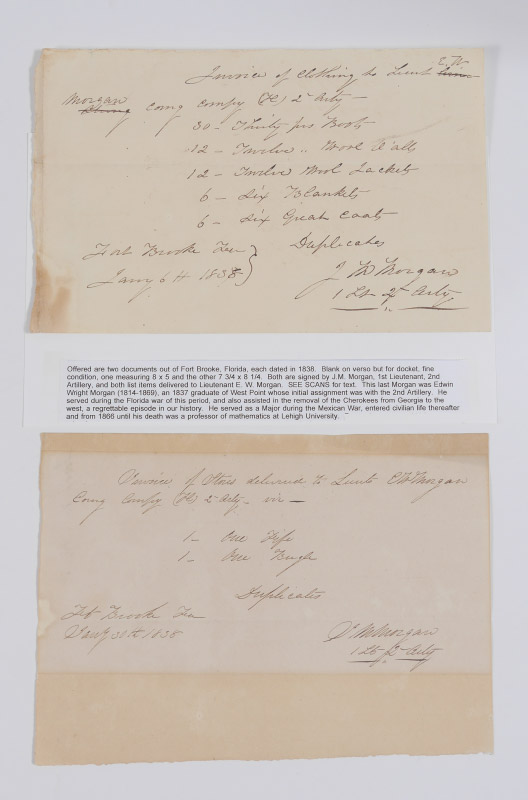 E. W.
Invoice of Clothing to Lieut
Morgan
comg compy (H) 2d Arty –
30 – Thirty prs Boots
12 – Twelve „ Wool O'alls
12 – Twelve Wool Jackets
6 – Six Blankets
6 – Six Great Coats
Duplicates
Fort Brooke
Jany 6th 1838
J M Morgan
1 Lt 2d Arty
Offered are two documents out of Fort Brooke, Florida, each dated in 1838. Blank on verso but for docket, fine
condition, one measuring 8 x 5 and the other 7 3/4 x 8 1/4. Both are signed by J.M. Morgan, 1st Lieutenant, 2nd
Artillery, and both list items delivered to Lieutenant E. W. Morgan. SEE SCANS for text. This last Morgan was Edwin
Wright Morgan (1814-1869), an 1837 graduate of West Point whose initial assignment was with the 2nd Artillery. He
served during the Florida war of this period, and also assisted in the removal of the Cherokees from Georgia to the
west, a regrettable episode in our history. He served as a Major during the Mexican War, entered civilian life thereafter
and from 1866 until his death was a professor of mathematics at Lehigh University.
Invoice of Stores delivered to Lieut E W Morgan
Comg Compy (H) 2d Arty – viz –
1 – One Fife
1 – One Bugle
Duplicates
Ft Brooke
Jany 31st 1838
J M Morgan
1 Lt 2d Arty